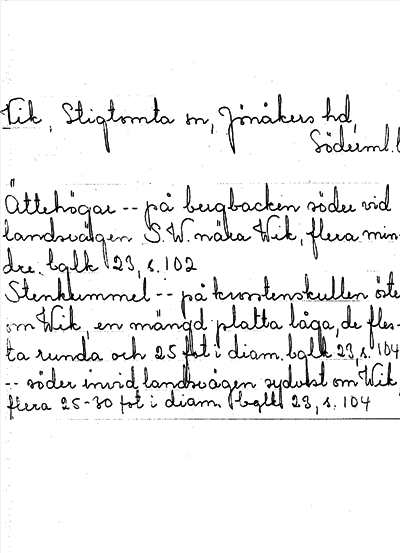 Vik, Stigtomta sn, Jönåkers hd,
Söderml.
Ättehögar -- på bergbacken söder vid
landsvägen S.W. nära Wik, flera min-
dre. bglk 23, s. 102
Stenkummel -- på krosstenskullen öster
om Wik, en mängd platta låga, de fles-
ta runda och 25 fot i diam. bglk 23, s. 104
-- söder invid landsvägen sydvst om Wik
flera 25-30 fot i diam. bglk 23, s. 104